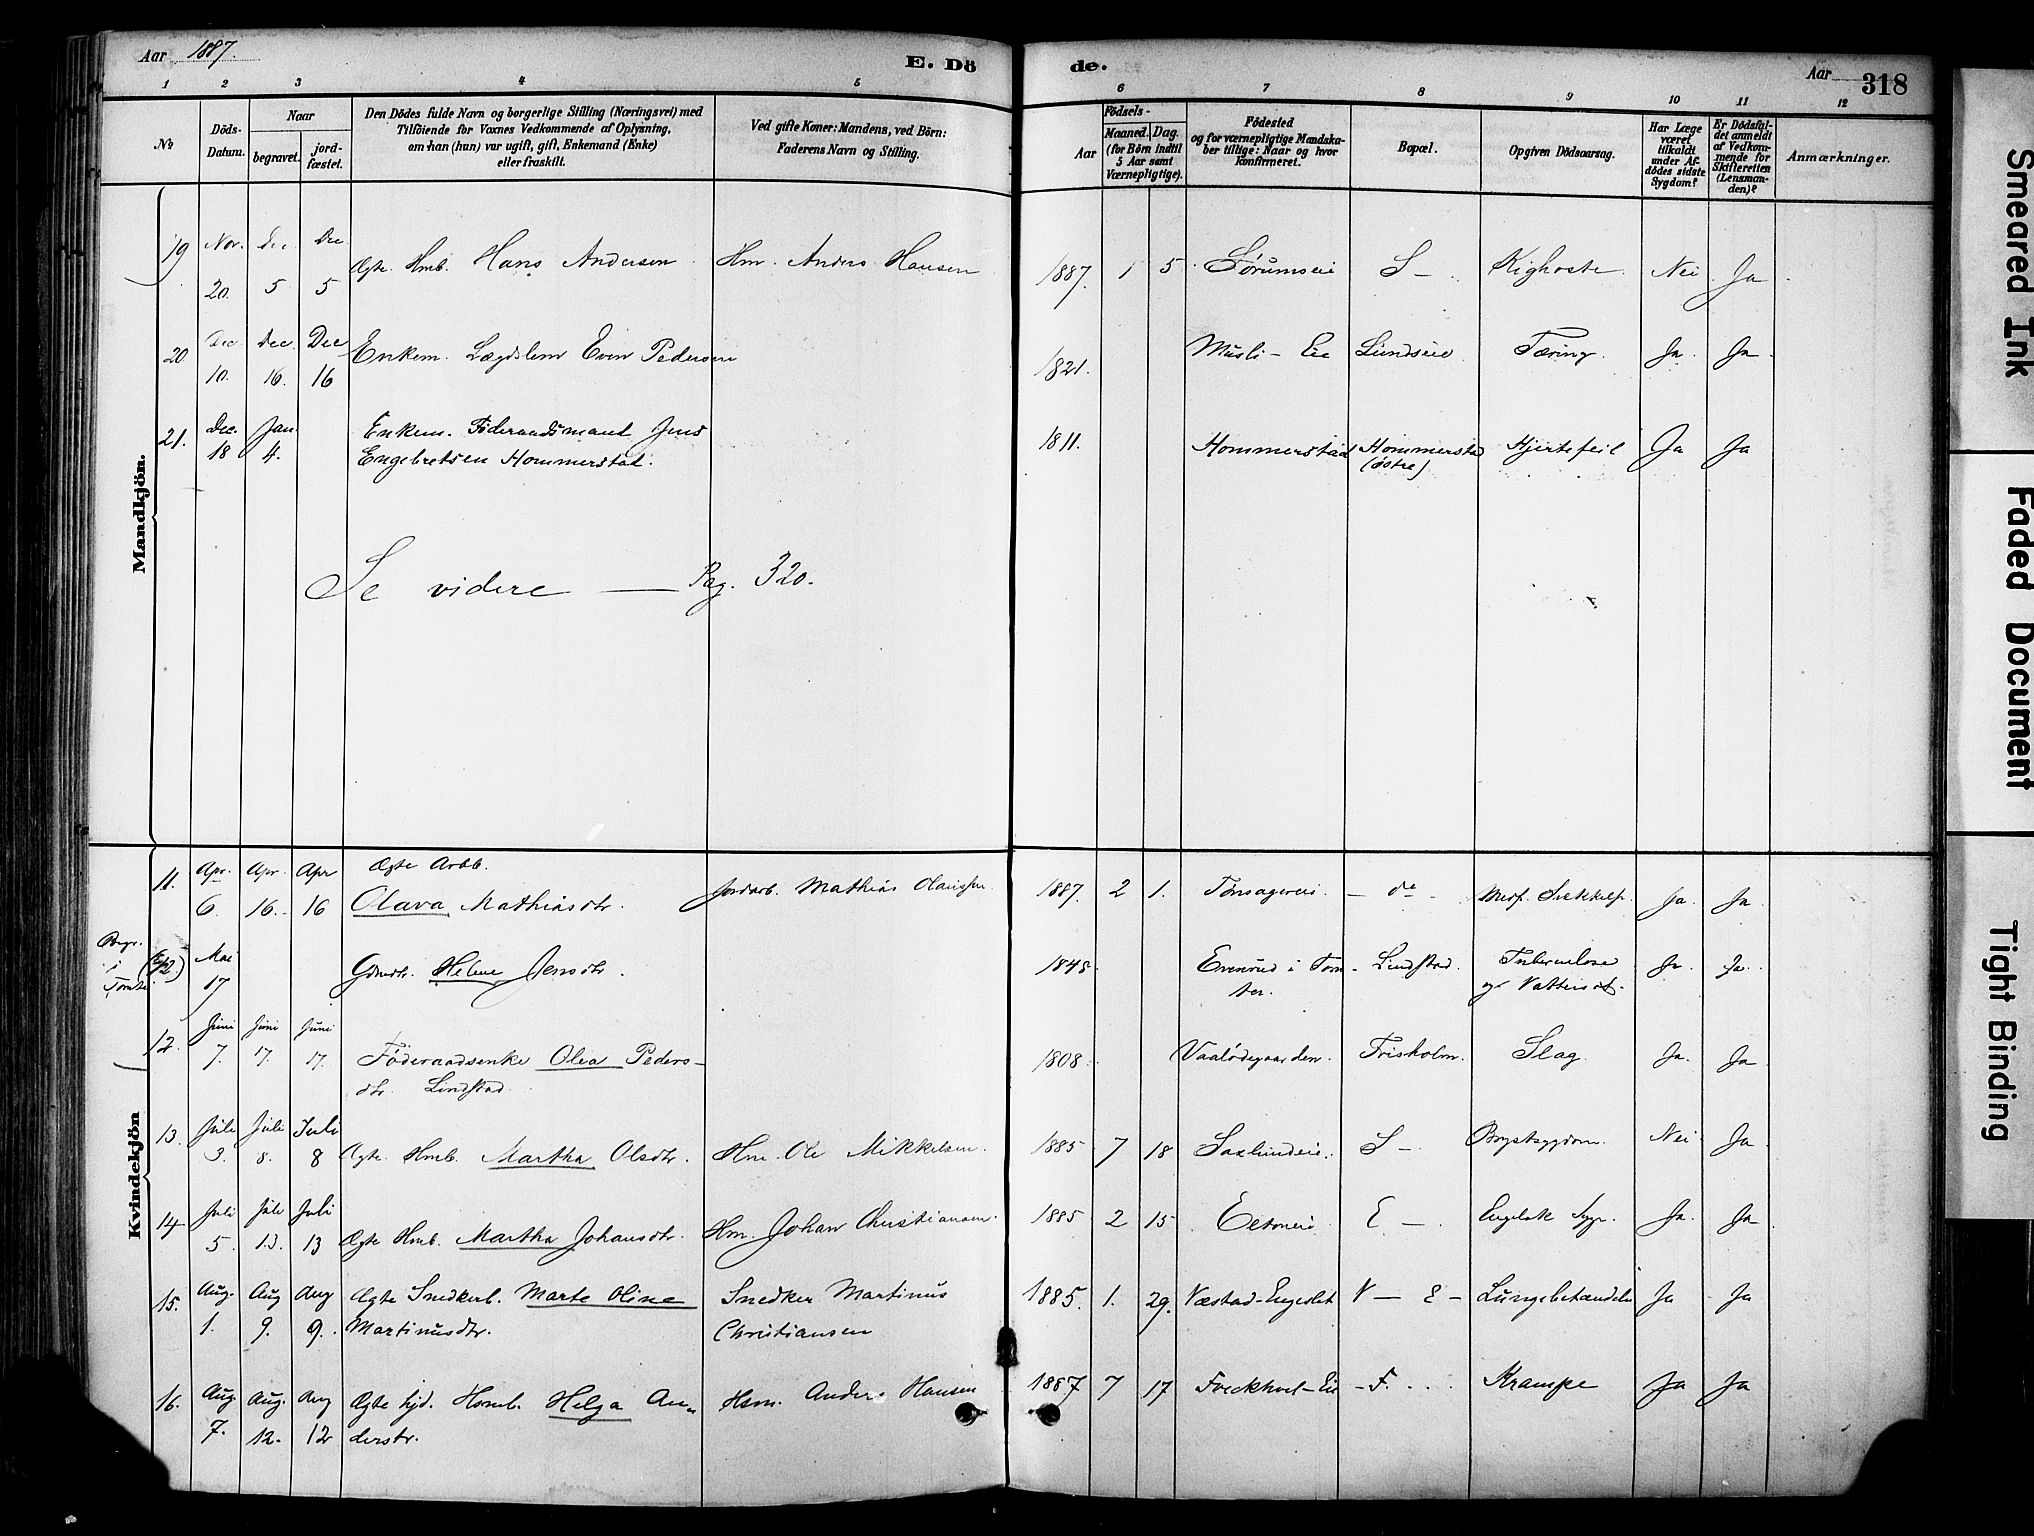 Aar 1887.
E. Dö
de.
Aar
318
1 2 3 4 5 6 7 8 9 10 11 12
No
Döds-
Datum.
Naar
begravet.
jord-
fæstet.
Den Dödes fulde Navn og borgerlige Stilling (Næringsvei) med
Tilföiende for Voxnes Vedkommende af Oplysning,
om han (hun) var ugift, gift, Enkemand (Enke)
eller fraskilt.
Ved gifte Koner: Mandens, ved Börn:
Faderens Navn og Stilling.
Födsels-
Aar
Maaned. Dag.
(for Börn indtil
5 Aar samt
Værnepligtige).
Födested
og for værnepligtige Mandska-
ber tillige: Naar og hvor
konfirmeret.
Bopæl.
Opgiven Dödsaarsag.
Har Læge
været
tilkaldt
under Af-
dödes sidste
Sygdom?
Er Dödsfal-
det anmeldt
af Vedkom-
mende for
Skifteretten
(Lensman-
den)?
Anmærkninger.
Mandkjön.
19 Nov. Dec Dec
20. 5 5
Ægte Hmb. Hans Andersen Hm. Anders Hansen 1887. 1 5 Sørumseie S – Kighoste Nei Ja
20 Dec. Dec. Dec
10. 16. 16
Enkem. Lægdslem Even Pedersen 1821. Musli-Eie Lundseie Tæring. Ja Ja
21. Dec. Jan.
18 4.
Enkem. Föderaadsmand Jens
Engebretsen Hommerstad.
1811. Hommerstad Hommerstad
(östre)
Hjertefeil Ja Ja
Se videre — Pag. 320.
Kvindekjön
11. Apr. Apr. Apr
6. 16. 16
Ægte Arbb.
Olava Mathiasdtr. Jordarb. Mathias Olaussen 1887. 2 1. – do Ja. Ja
Begr.
i
(12.) Mai
17
Gdmdtr. Helene Jensdtr. 1848 Evenrud i Tom-
ter.
Lindstad. Tuberculose
og Vattersot. Ja Ja.
12. Juni Juni Juni
7. 17. 17.
Föderaadsenke Olea Peders-
dtr. Lindstad
1808. Vaalödegaarden. Frisholm. Slag. Ja. Ja
13. Juli Juli Juli
3. 8. 8
Ægte Hmb. Martha Olsdtr. Hm. Ole Mikkelsen. 1885 7 18 Saxlundeie. S – Brystsygdom. Nei Ja.
14 Juli Juli Juli
5. 13. 13
Ægte Hmb. Martha Johansdtr. Hm. Johan Christiansen. 1885 2 15 E – Engelsk Syge. Ja. Ja
15. Aug. Aug Aug
1. 9. 9.
Ægte Snedkerb. Marte Oline
Martinusdtr.
Snedker Martinus
Christiansen
1885. 1. 29. Næstad-Engeslet N – E – Lungebetændelse Ja Ja
16. Aug. Aug. Aug
7. 12. 12
Ægte tjd. Hsmb. Helga An-
derstr.
Hsm. Anders Hansen 1887 7 17 Freckhvel-Eie – F. Krampe Ja Ja
Smeared Ink
Faded Document
Tight Binding